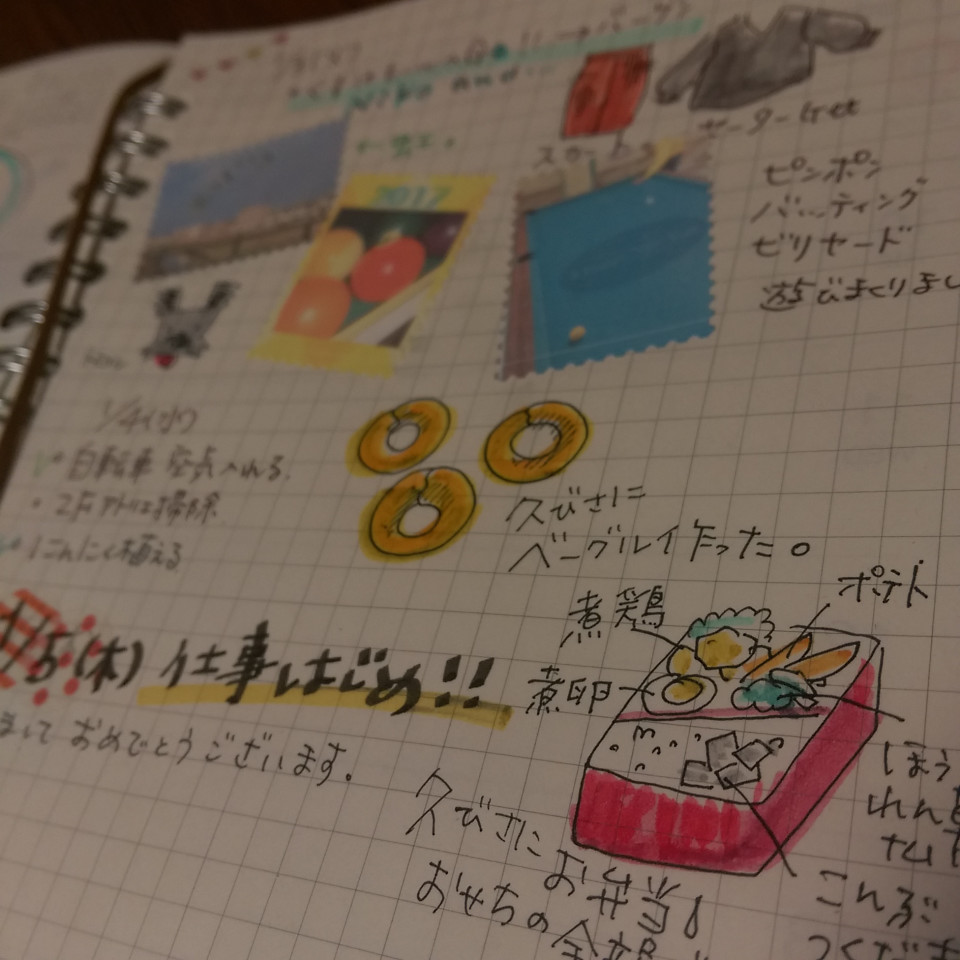 セーターGet
スカート
2017
ピンポン
バッティング
ビリヤード
遊びまくりまし
1/4(水)
・自転車 空気入れる。
・2F 掃除
・にんにく植える
久びさに
ベーグル作った。
1/5(木) 仕事はじめ!!
まして おめでとうございます。
煮鶏
ポテト
煮卵
ほう
れん草
ナムル
こんぶ
つくだ
久びさに お弁当!
おせちの